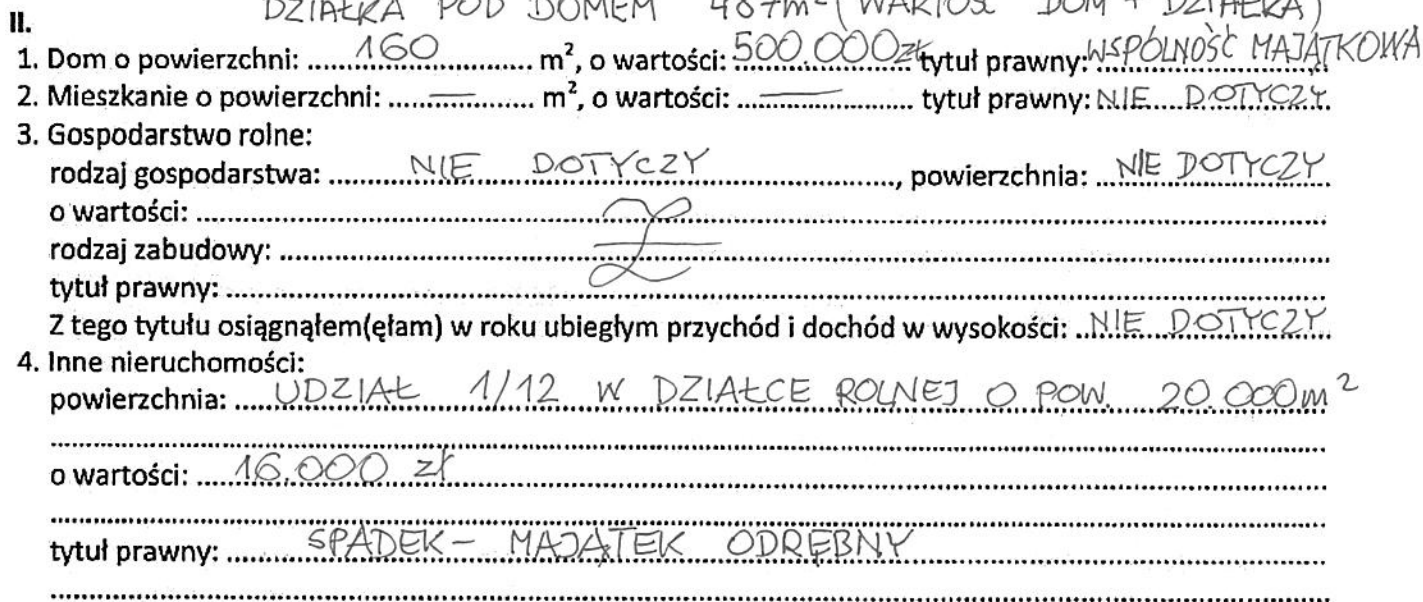 DZIAŁKA POD DOMEM 487m² (WARTOŚĆ DOM + DZIAŁKA)
II.
1. Dom o powierzchni: ......160............ m², o wartości: 500.000zł tytuł prawny: WSPÓLNOŚĆ MAJĄTKOWA
2. Mieszkanie o powierzchni: ......—......... m², o wartości: ......—............ tytuł prawny: NIE DOTYCZY.
3. Gospodarstwo rolne:
rodzaj gospodarstwa: ............NIE DOTYCZY........................, powierzchnia: ...NIE DOTYCZY
o wartości: ........................
rodzaj zabudowy: ........................
tytuł prawny: ........................
Z tego tytułu osiągnąłem(ęłam) w roku ubiegłym przychód i dochód w wysokości: ..NIE DOTYCZY..
4. Inne nieruchomości:
powierzchnia: ......UDZIAŁ 1/12 W DZIAŁCE ROLNEJ O POW. 20.000m²
o wartości: ......16.000 zł........................
tytuł prawny: ............SPADEK – MAJĄTEK ODRĘBNY........................